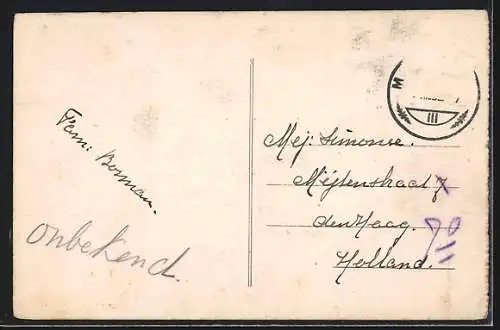 Fam: Borman.
onbekend.
M
III
Mej: Simonse.
Mijtenstraat 7
den Haag.
Holland.